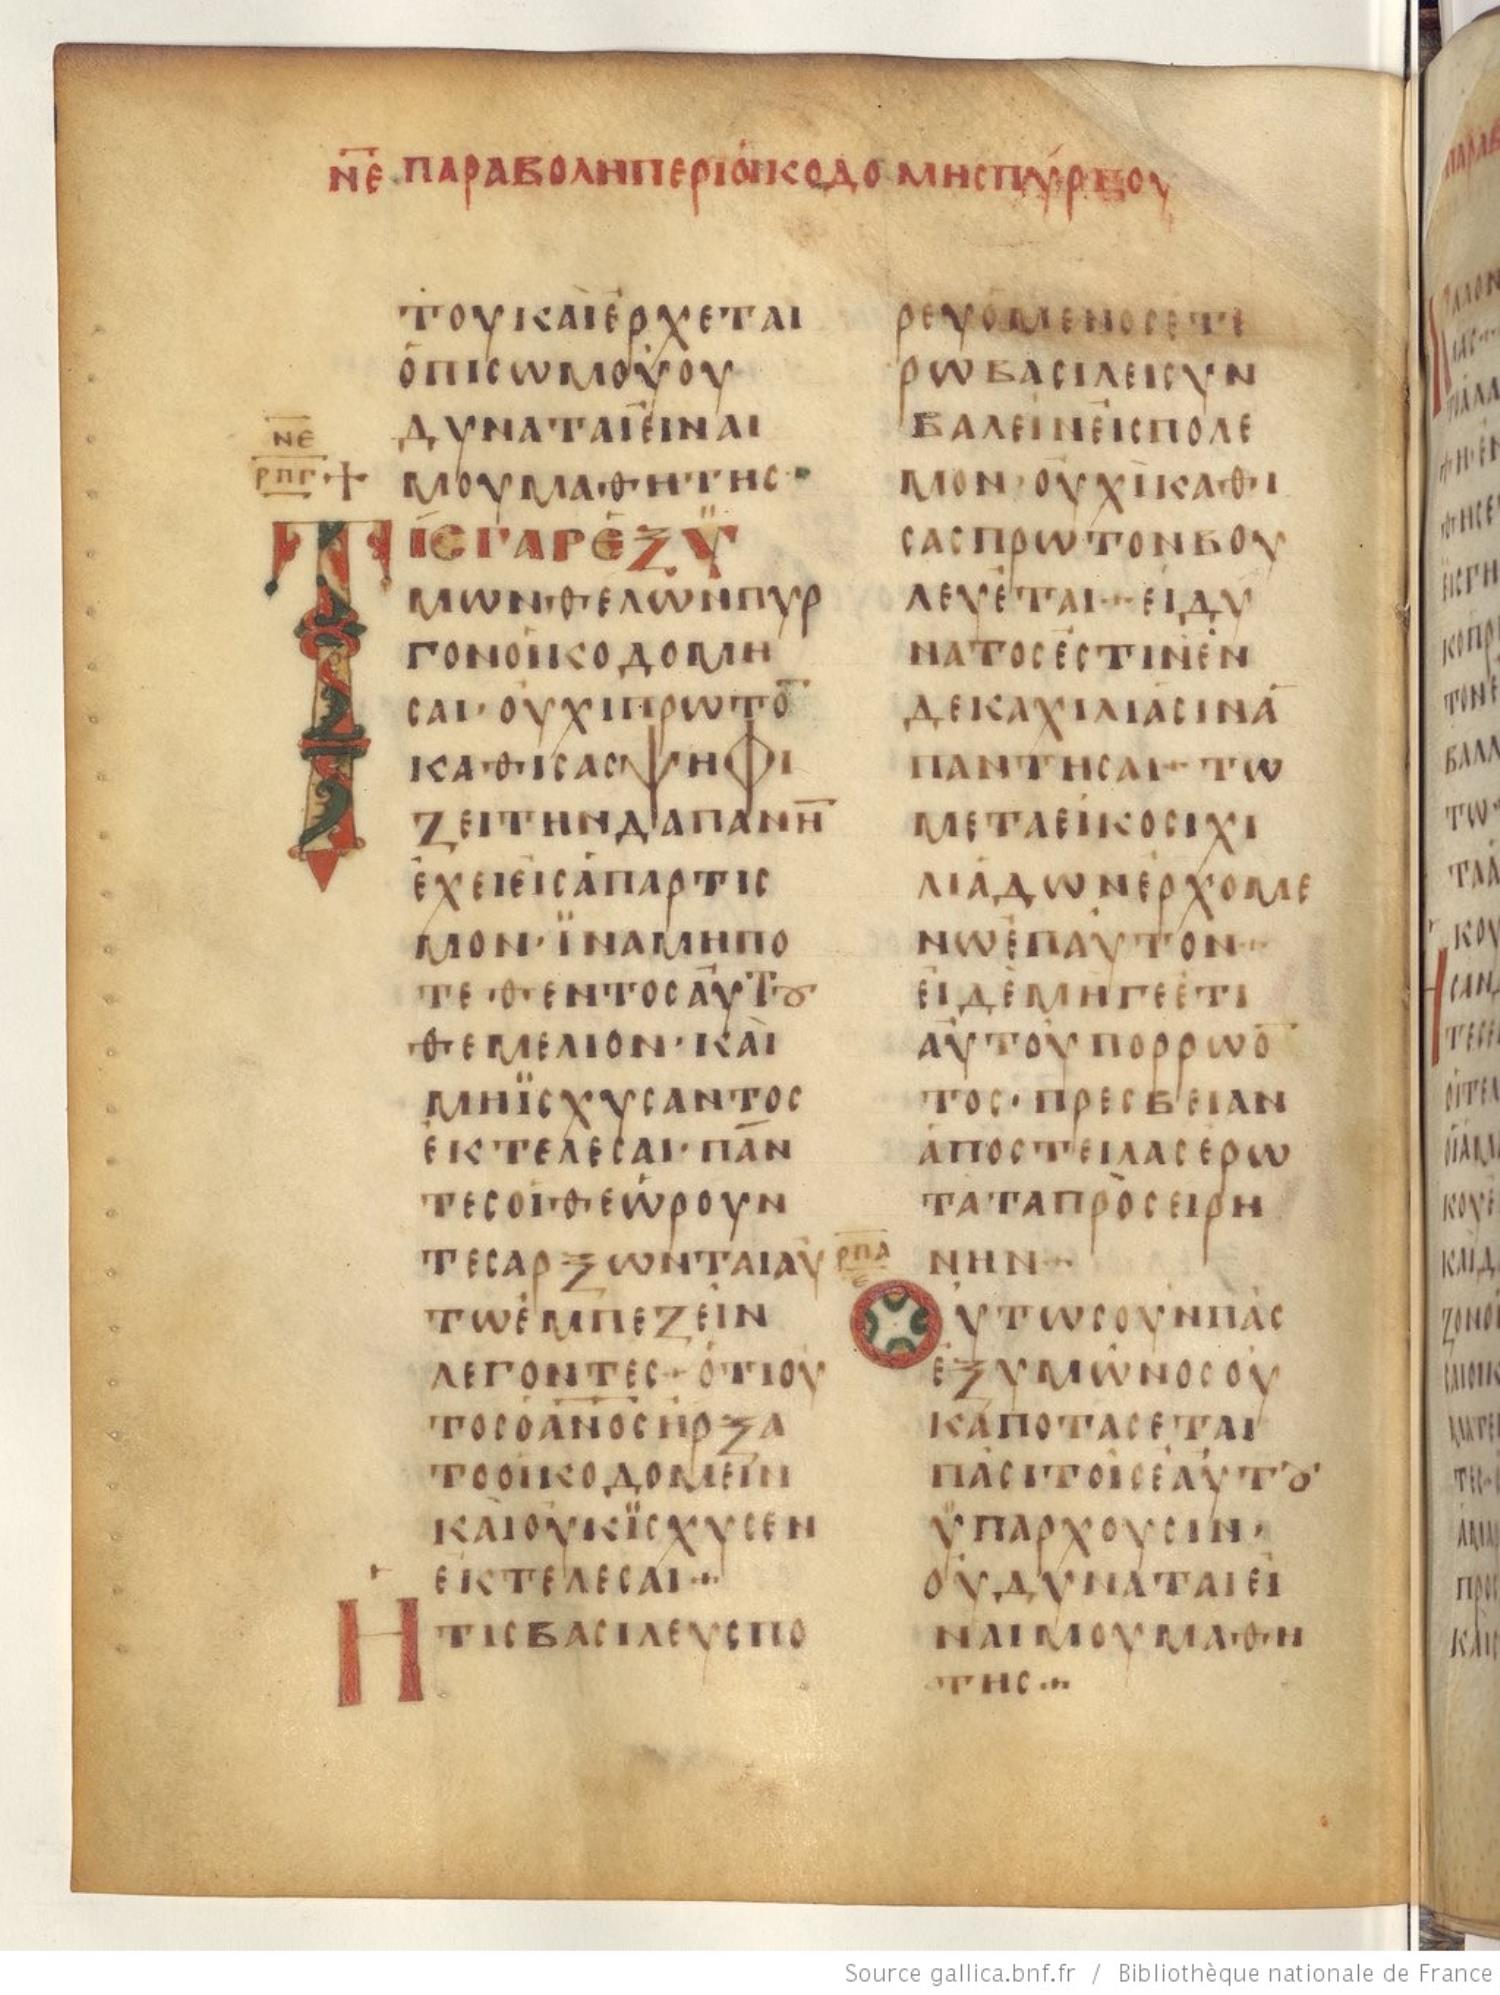 ΝΕ ΠΑΡΑΒΟΛΗ ΠΕΡΙ ΟΙΚΟΔΟΜΗC ΠΥΡΓΟΥ
ΤΟΥ ΚΑΙ ΕΡΧΕΤΑΙ
ΟΠΙCΩ ΜΟΥ ΟΥ
ΔΥΝΑΤΑΙ ΕΙΝΑΙ
ΝΕ
ΡΠΓ
ΜΟΥ ΜΑΘΗΤΗC·
ΤΙC ΓΑΡ ΕΞ Ϋ
ΜΩΝ ΘΕΛΩΝ ΠΥΡ
ΓΟΝ ΟΙΚΟΔΟΜΗ
CΑΙ· ΟΥΧΙ ΠΡΩΤΟ̅
ΚΑΘΙCΑC ΨΗΦΙ
ΖΕΙ ΤΗΝ ΔΑΠΑΝΗ̅
ΕΧΕΙ ΕΙC ΑΠΑΡΤΙC
ΜΟΝ· ΪΝΑ ΜΗΠΟ
ΤΕ ΘΕΝΤΟC ΑΥΤȢ
ΘΕΜΕΛΙΟΝ· ΚΑΙ
ΜΗ ΪCΧΥCΑΝΤΟC
ΕΚΤΕΛΕCΑΙ· ΠΑΝ
ΤΕC ΟΙ ΘΕΩΡΟΥΝ
ΤΕC ΑΡΞΩΝΤΑΙ ΑΥ
ΤΩ ΕΜΠΕΖΕΙΝ
ΛΕΓΟΝΤΕC· ΟΤΙ ΟΥ
ΤΟC Ο Α̅Ν̅Ο̅C̅ ΗΡΞΑ
ΤΟ ΟΙΚΟΔΟΜΕΙΝ
ΚΑΙ ΟΥΚ ΪCΧΥCΕΝ
ΕΚΤΕΛΕCΑΙ··
Η ΤΙC ΒΑCΙΛΕΥC ΠΟ
ΡΕΥΟΜΕΝΟC ΕΤΕ
ΡΩ ΒΑCΙΛΕΙ CΥΝ
ΒΑΛΕΙΝ ΕΙC ΠΟΛΕ
ΜΟΝ· ΟΥΧΙ ΚΑΘΙ
CΑC ΠΡΩΤΟΝ ΒΟΥ
ΛΕΥΕΤΑΙ·· ΕΙ ΔΥ
ΝΑΤΟC ΕCΤΙΝ ΕΝ
ΔΕΚΑ ΧΙΛΙΑCΙΝ Α
ΠΑΝΤΗCΑΙ·· ΤΩ
ΜΕΤΑ ΕΙΚΟCΙ ΧΙ
ΛΙΑΔΩΝ ΕΡΧΟΜΕ
ΝΩ ΕΠ ΑΥΤΟΝ··
ΕΙ ΔΕ ΜΗΓΕ ΕΤΙ
ΑΥΤΟΥ ΠΟΡΡΩ Ο̅
ΤΟC· ΠΡΕCΒΕΙΑΝ
ΑΠΟCΤΕΙΛΑC ΕΡΩ
ΤΑ ΤΑ ΠΡΟC ΕΙΡΗ
ΡΠΔ
ΝΗΝ··
ΟΥΤΩC ΟΥΝ ΠΑC
ΕΞ ΥΜΩΝ ΟC ΟΥ
Κ ΑΠΟΤΑCΕΤΑΙ
ΠΑCΙ ΤΟΙC ΕΑΥΤȢ
ΫΠΑΡΧΟΥCΙΝ·
ΟΥ ΔΥΝΑΤΑΙ ΕΙ
ΝΑΙ ΜΟΥ ΜΑΘΗ
ΤΗC··
Source gallica.bnf.fr / Bibliothèque nationale de France